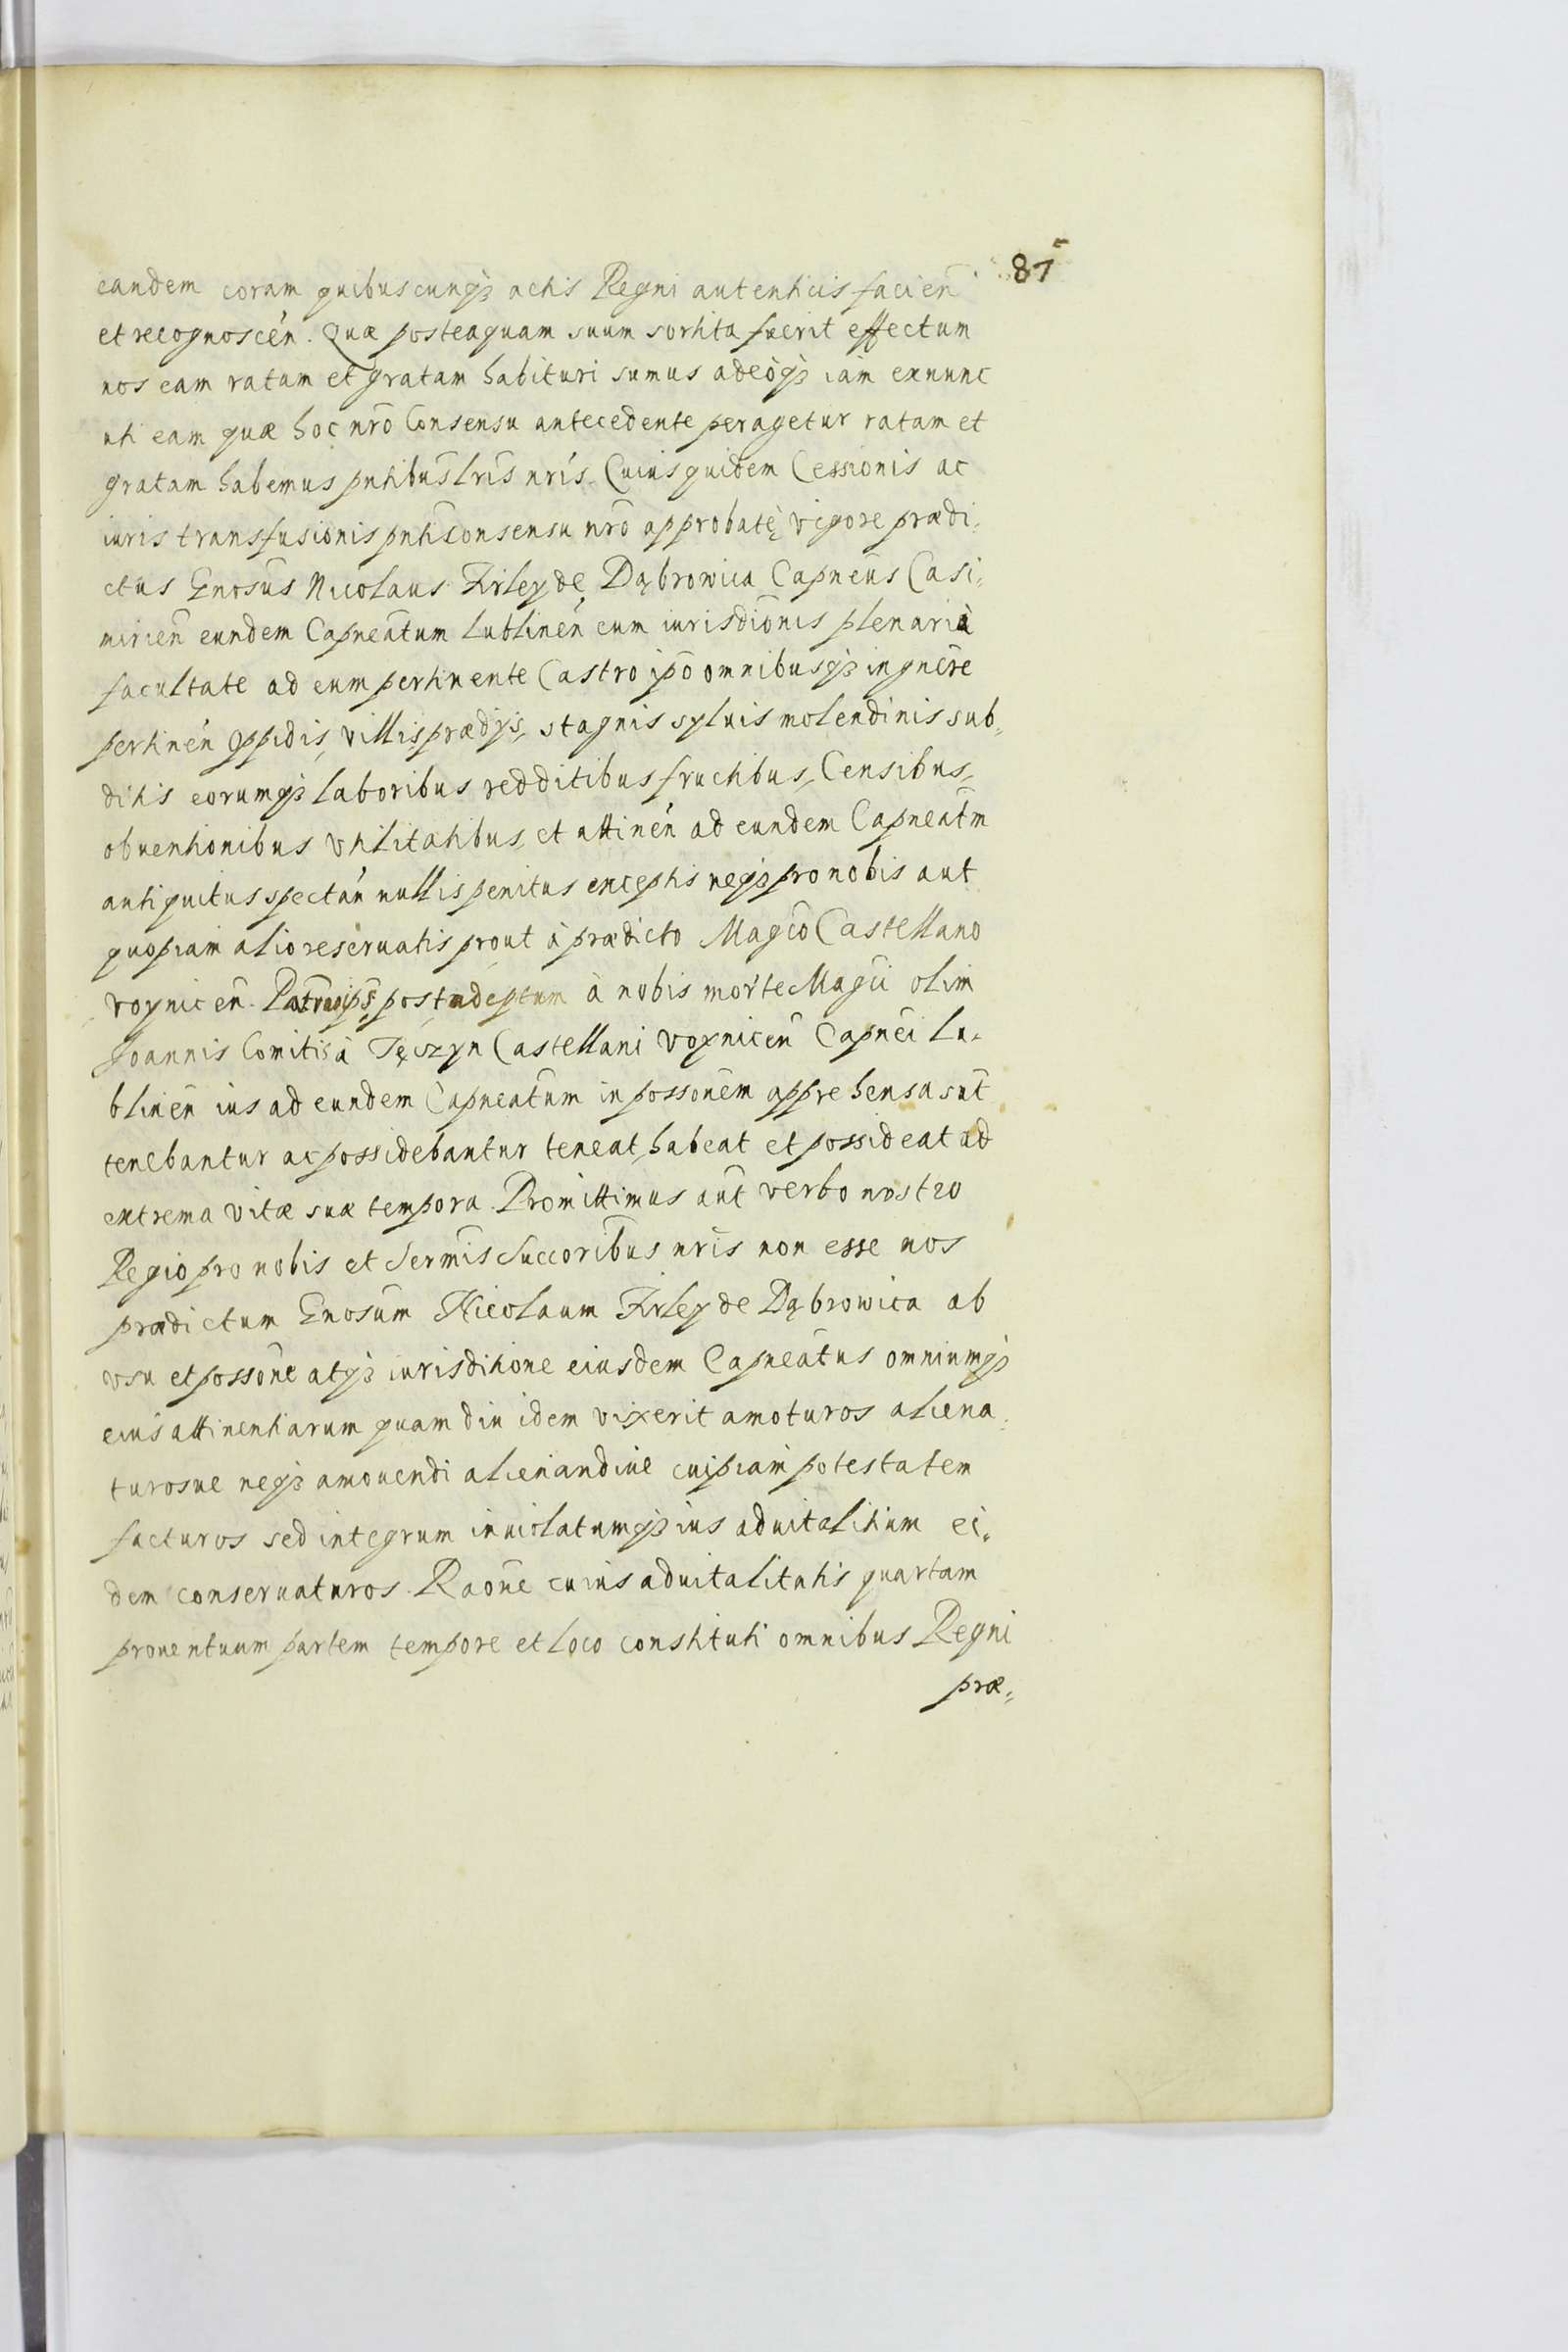 87
eandem coram quibuscunqȝ actis Regni autenticis facien̄
et recognoscen̄. Quæ posteaquam suum sortita fuerit effectum
nos eam ratam et gratam habituri sumus adeoqȝ iam exnunc
uti eam quæ hoc nr̄o Consensu antecedente peragetur ratam et
gratam habemus pn̄tibus lr̄is nr̄is. Cuius quidem Cessionis ac
iuris transfusionis pn̄ti consensu nr̄o approbatę vigore prædi,
ctus Gn̄osus Nicolaus Firley de Dąbrowica Capn̄eus Casi,
mirien̄ eundem Capn̄eatum Lublinen̄ cum iurisdio̅nis plenaria
facultate ad eum pertinente Castro ip̄o omnibusqȝ in gn̄ere
pertinen̄ oppidis, villis prædijs, stagnis syluis molendinis sub,,
ditis eorumqȝ laboribus redditibus fructibus, Censibus,
obuentionibus vtilitatibus, et attinen̄ ad eundem Capn̄eatm̄
antiquitus spectan̄ nullis penitus exceptis neqȝ pro nobis aut
quopiam alio reseruatis prout à prædicto Magco̅ Castellano
voynicen̄. post adeptum à nobis morte Magci̅ olim
Joannis Comitis à Tęczyn Castellani voynicen̄ Capn̄ei Lu,
blinen̄ ius ad eundem Capn̄eatum in posson̄em apprehensa sun̄t
tenebantur ac possidebantur teneat, habeat et possideat ad
extrema vitæ suæ tempora. Promittimus aut̄ verbo nostro
Regio pro nobis et Serm̄is Succoribus nr̄is non esse nos
prædictum Gn̄osum Nicolaum Firley de Dąbrowica ab
vsu et posson̄e atqȝ iurisditione eiusdem Capn̄eatus omniumqȝ
eius attinentiarum quam diu idem vixerit amoturos aliena,
turosue neqȝ amouendi alienandiue cuipiam potestatem
facturos sed integrum inuiolatumqȝ ius aduitalitium ei,
dem conseruaturos. Raōne cuius aduitalitatis quartam
prouentuum partem tempore et loco constituti omnibus Regni
præ,,